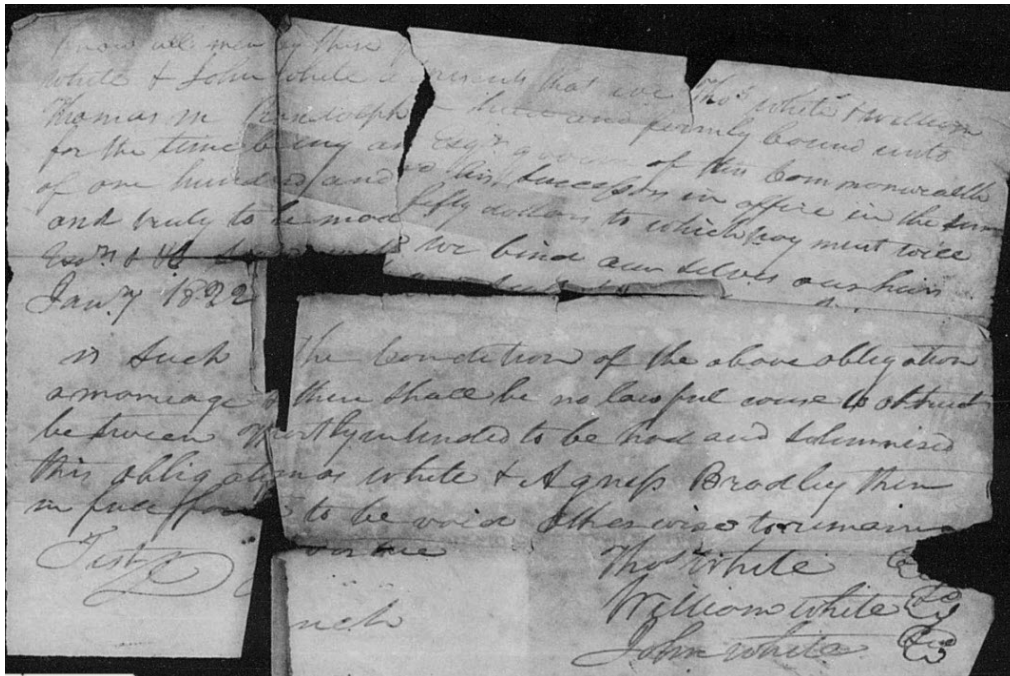 Know all men by these presents that we Thos White & William
White & John White are held and firmly bound unto
Thomas M Randolph Esqr govenor of this Commonwealth
for the time being and his Successors in office in the sum
of one hundred and fifty dollars to which payment will
and truly to be mad we bind our selves our heirs
Jany 1822
is Such the Condition of the above obligation
a marriage there Shall be no lawful cause to obstruct
between Shortly intended to be had and Solemnised
this obligation White & Agness Bradley then
in full force to be void otherwise to remain
Test virtue Thos White
William White
John White